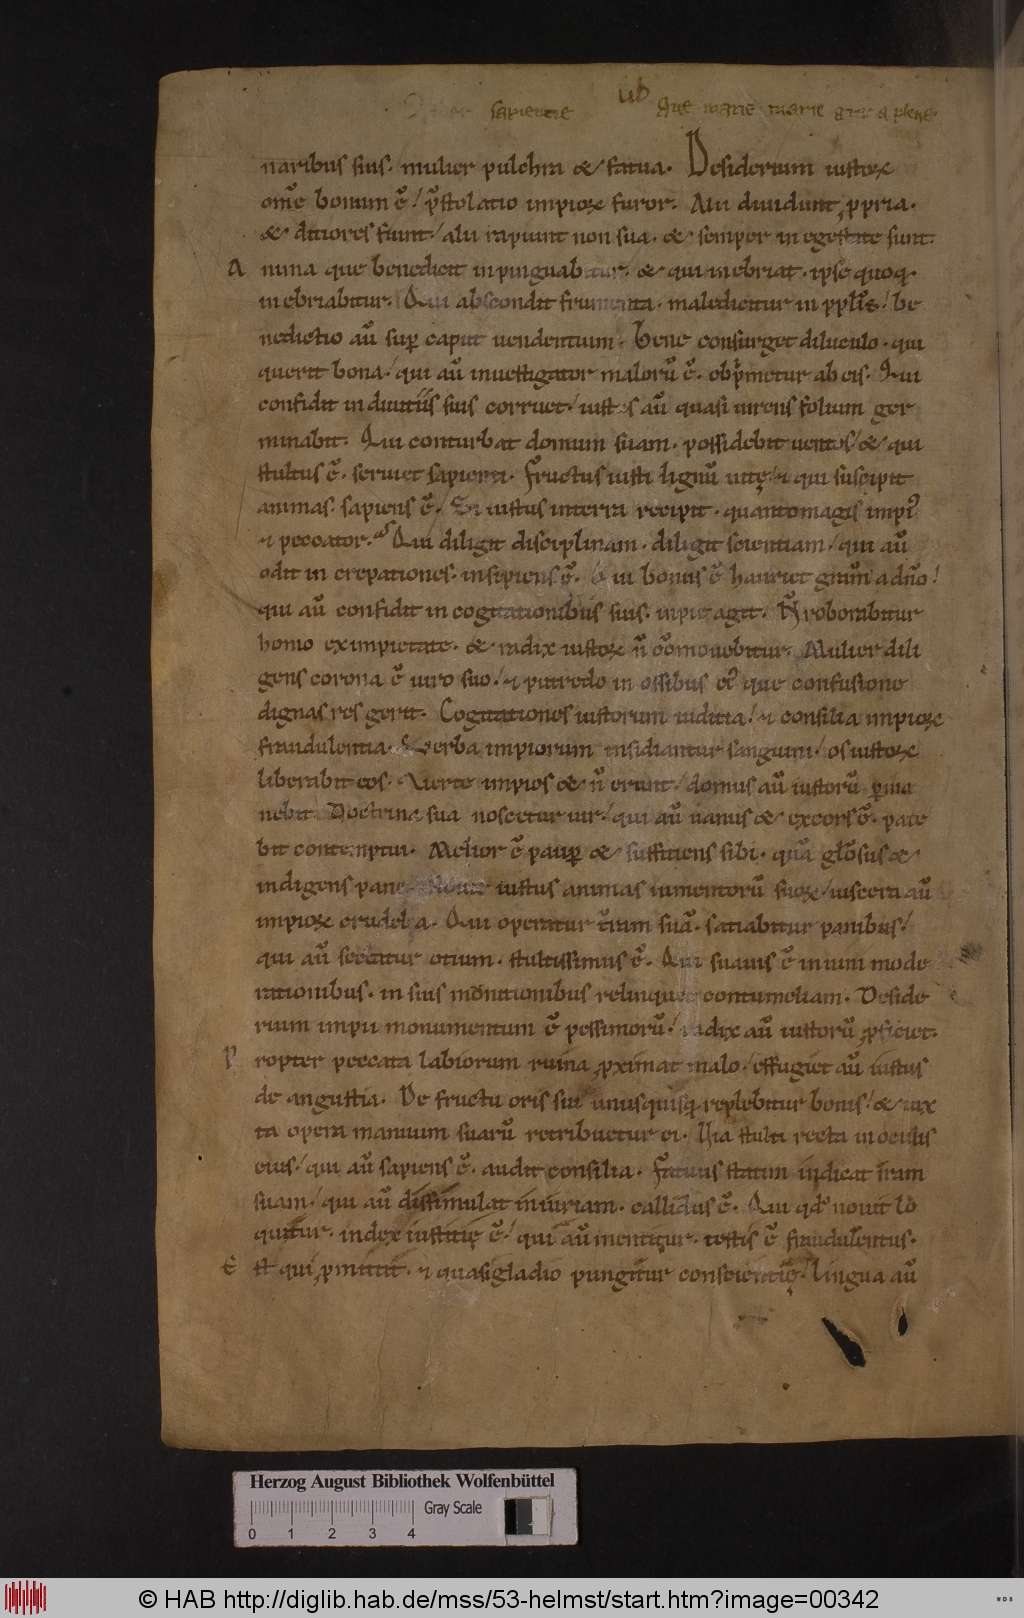 sapientie ub Aue marie marie gracia plene
naribus suis. mulier pulchra & fatua. Desiderium iustoꝝ
om̄e bonum ē / p̄stolatio impioꝝ furor. Alii diuidunt ꝓpria.
& ditiores fiunt / alii rapiunt non sua. & semper in egestate sunt.
A nima que benedicit inpinguabitur. & qui inebriat. ipse quoq.
inebriabitur. Qui abscondit frumenta. maledicitur in ppl̄is / be
nedictio aū sup caput uendentium. Bene consurget diluculo. qui
querit bona / qui aū inuestigator malorū ē. obp̄metur ab eis. Qui
confidit in diuitiis suis corruet / iustos aū quasi uirens folium ger
minabit. Qui conturbat domum suam. possidebit uentos / & qui
stultus ē. seruiet sapienti. Fructus iusti lignū uitę / ⁊ qui suscipit
animas. sapiens ē / Si iustus interra recipit. quantomagis impiꝰ
⁊ peccator. Qui diligit disciplinam. diligit scientiam / qui aū
odit increpationes. insipiens ē. Qui bonus ē hauriet grām a dn̄o /
qui aū confidit in cogitationibus suis. inpie agit. N̄ roborabitur
homo ex impietate. & radix iustoꝝ n̄ cōmouebitur. Mulier dili
gens corona ē uiro suo / ⁊ putredo in ossibus eiꝰ que confusione
dignas res gerit. Cogitationes iustorum iudicia / ⁊ consilia impioꝝ
fraudulentia. Verba impiorum insidiantur sanguini / os iustoꝝ
liberabit eos. Uerte impios & n̄ erunt / domus aū iustorū ꝑma
nebit. Doctrina sua noscetur uir / qui aū uanus & excors ē. pate
bit contemptui. Melior ē paup & suffitiens sibi. quā gl̄osus &
indigens pane. Nouit iustus animas iumentorū suoꝝ / uiscera aū
impioꝝ crudelia. Qui operatur t̄ram suā. satiabitur panibus /
qui aū sectatur otium. stultissimus ē. Qui suauis ē in uini mode
rationibus. in suis mōnitionibus relinquet contumeliam. Deside
rium impii monumentum ē pessimorū / radix aū iustorū ꝓficiet.
P ropter peccata labiorum ruina ꝓximat malo / effugiet aū iustus
de angustia. De fructu oris sui unusquisq replebitur bonis / & iux
ta opera manuum suarū retribuetur ei. Uia stulti recta in oculis
eius / qui aū sapiens ē. audit consilia. Fatuus statim indicat iram
suam / qui aū dissimulat iniuriam. callidus ē. Qui qd̄ nouit lo
quitur. index iustitię ē / qui aū mentitur. testis ē fraudulentus.
E st qui ꝓmittit. ⁊ quasi gladio pungitur conscientię. Lingua aū
Herzog August Bibliothek Wolfenbüttel
Gray Scale
0 1 2 3 4
© HAB http://diglib.hab.de/mss/53-helmst/start.htm?image=00342